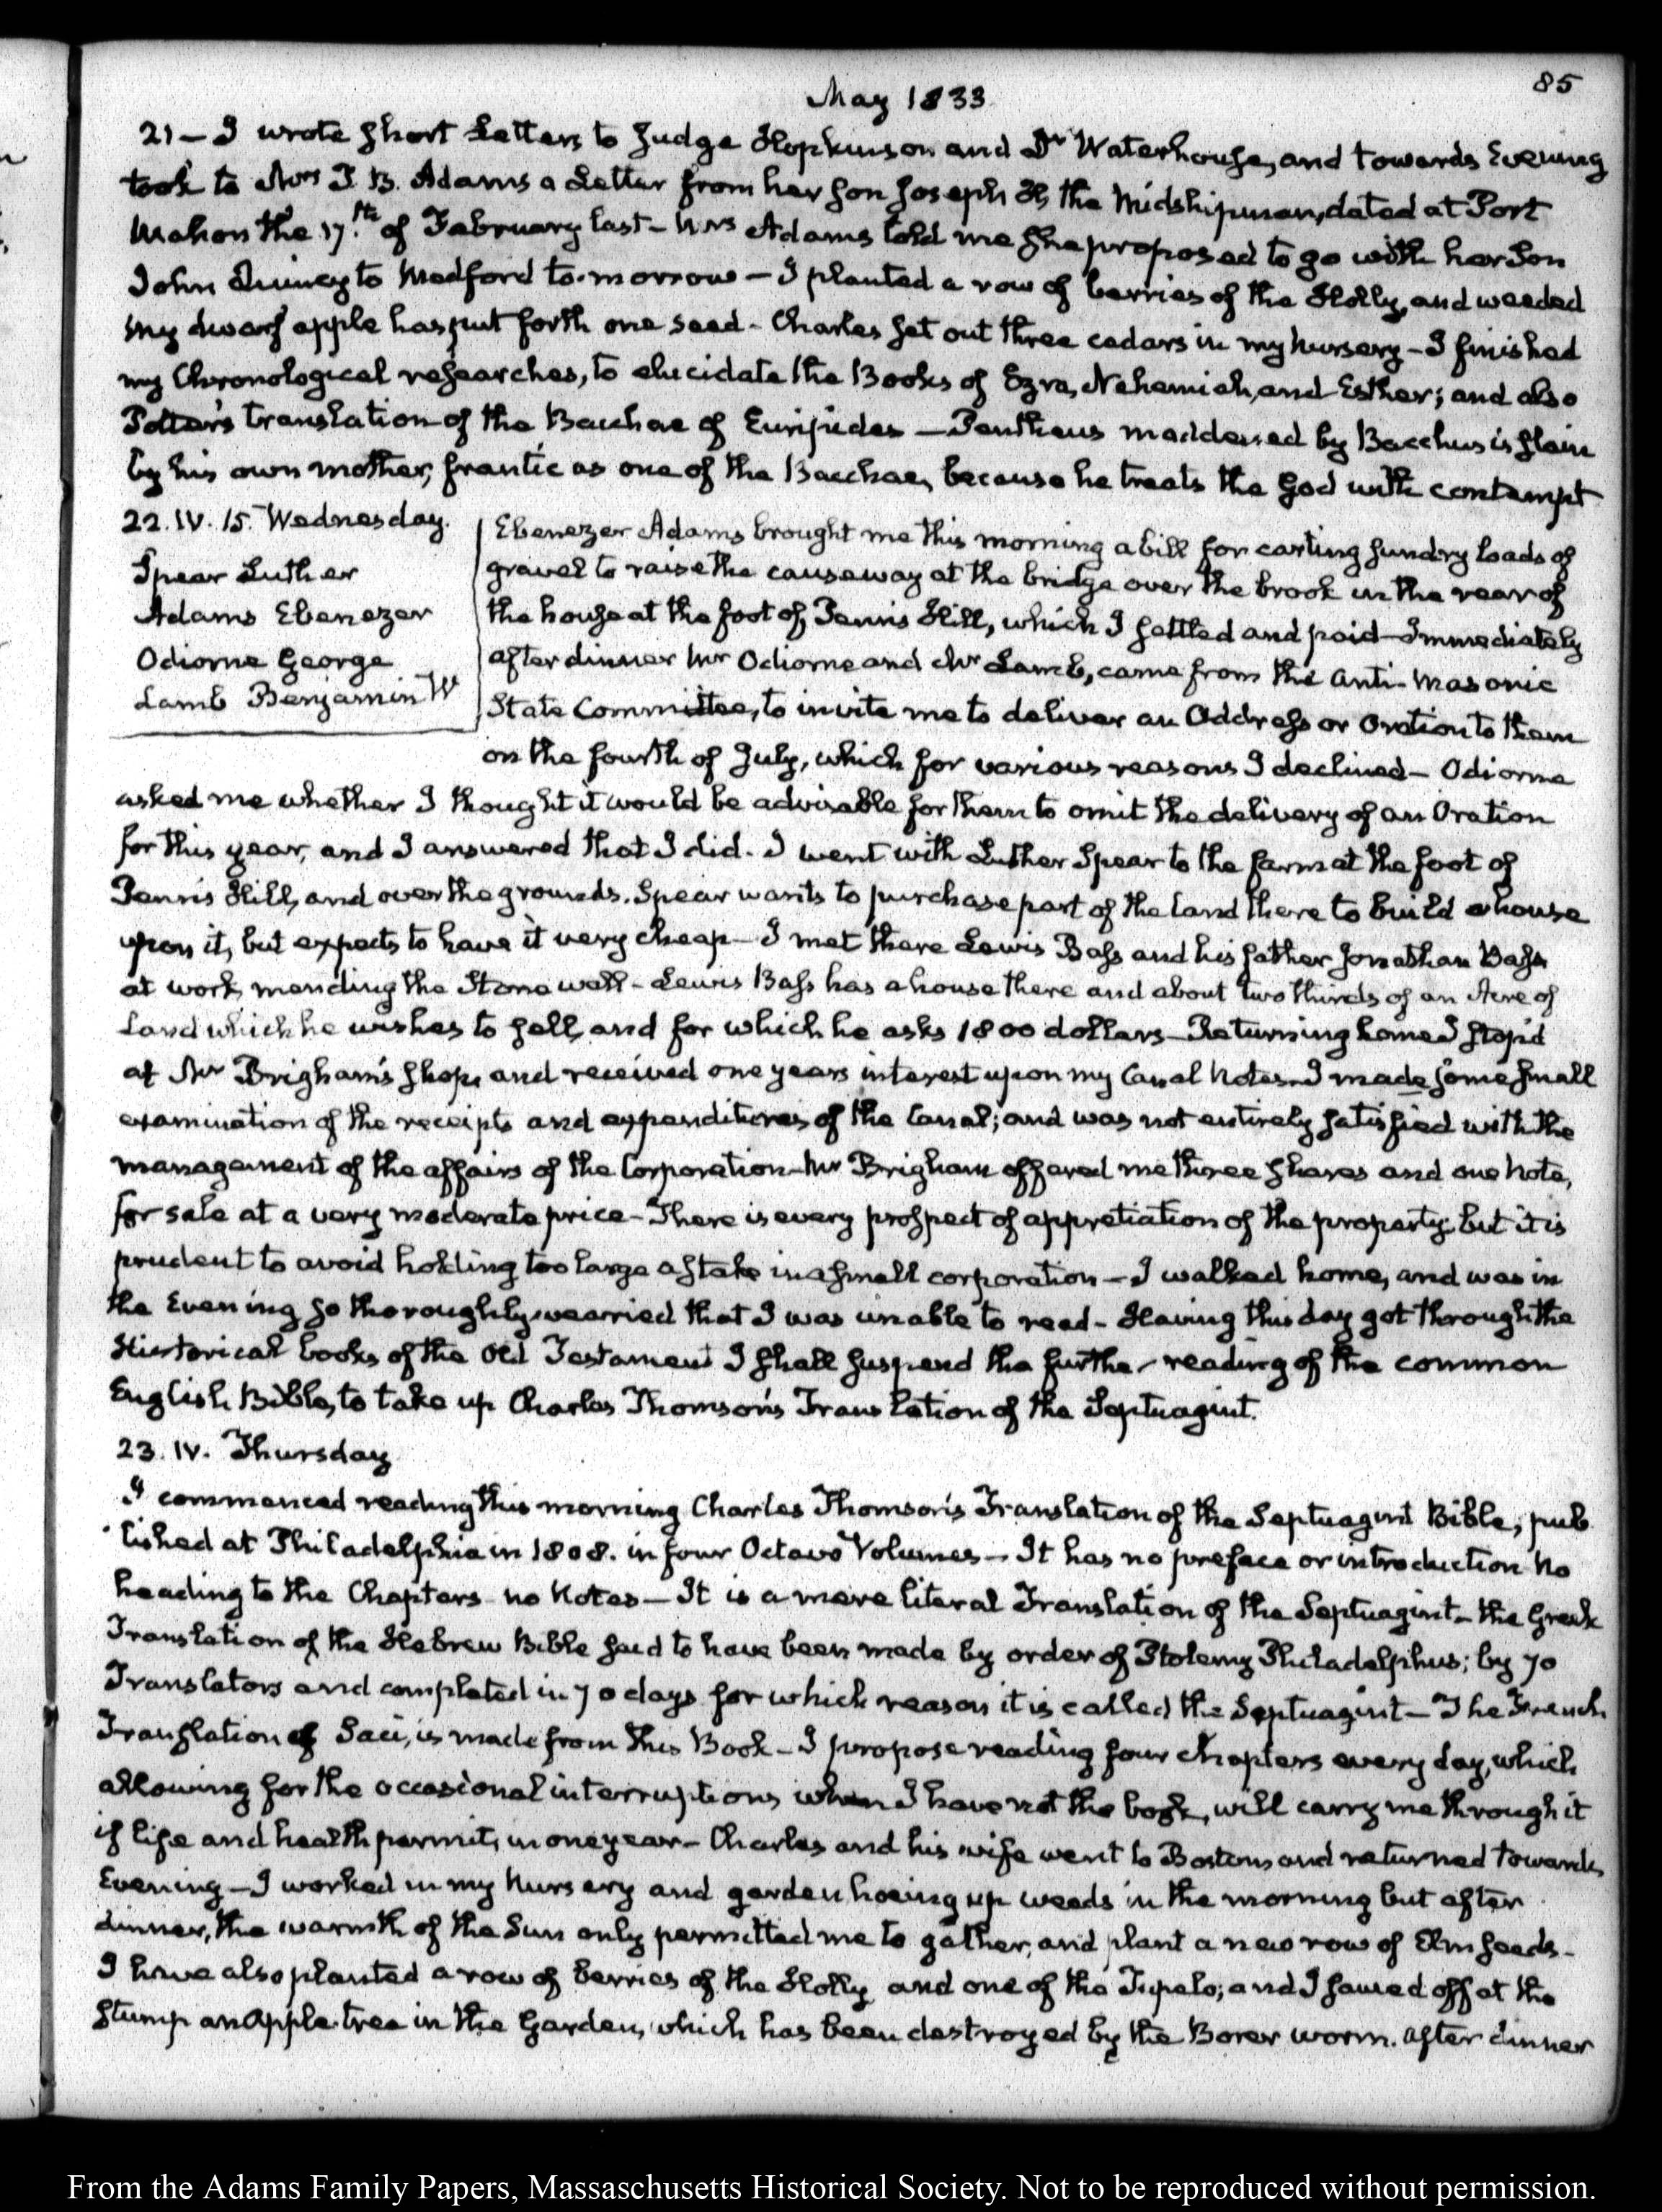 85
May 1833
21 – I wrote short Letters to Judge Hopkinson and Dr. Waterhouse, and towards Evening
took to Mrs J. B. Adams a Letter from her Son Joseph H, the Midshipman, dated at Port
Mahon the 17th of February last – Mrs Adams told me she proposed to go with her Son
John Quincy to Medford to-morrow – I planted a row of berries of the Holly, and weeded
My dwarf apple has put forth one seed – Charles set out three cedars in my Nursery – I finished
my Chronological researches, to elucidate the Books of Ezra, Nehemiah, and Esther; and also
Potter's translation of the Bacchae of Euripides – Pentheus maddened by Bacchus is slain
by his own mother, frantic as one of the Bacchae, because he treats the God with contempt
22. IV. 15. Wednesday.
Spear Luther
Adams Ebenezer
Odiorne George
Lamb Benjamin W
Ebenezer Adams brought me this morning a bill for carting sundry loads of
gravel to raise the causeway at the bridge over the brook in the rear of
the house at the foot of Penn's Hill, which I settled and paid – Immediately
after dinner Mr Odiorne and Mr Lamb, came from the Anti-Masonic
State Committee, to invite me to deliver an Address or Oration to them
on the fourth of July, which for various reasons I declined – Odiorne
asked me whether I thought it would be advisable for them to omit the delivery of an Oration
for this year, and I answered that I did. I went with Luther Spear to the farm at the foot of
Penn's Hill, and over the grounds. Spear wants to purchase part of the land there to build a house
upon it, but expects to have it very cheap – I met there Lewis Bass and his father Jonathan Bass
at work, mending the Stone wall – Lewis Bass has a house there and about two thirds of an Acre of
Land which he wishes to sell, and for which he asks 1800 dollars – Returning home I stop'd
at Mr Brigham's shop, and received one years interest upon my Canal Notes – I made some small
examination of the receipts and expenditures of the Canal; and was not entirely satisfied with the
management of the affairs of the Corporation – Mr Brigham offered me three shares and one Note,
for sale at a very moderate price – There is every prospect of appretiation of the property but it is
prudent to avoid holding too large a stake in a small corporation – I walked home, and was in
the Evening so thoroughly wearied that I was unable to read – Having this day got through the
Historical books of the Old Testament I shall suspend the further reading of the common
English Bible, to take up Charles Thomson's Translation of the Septuagint.
23. IV. Thursday
I commenced reading this morning Charles Thomson's Translation of the Septuagint Bible, pub
lished at Philadelphia in 1808. in four Octavo Volumes – It has no preface or introduction No
heading to the Chapters no Notes – It is a mere literal Translation of the Septuagint – the Greek
Translation of the Hebrew Bible said to have been made by order of Ptolemy Philadelphus; by 70
Translators and completed in 70 days for which reason it is called the Septuagint – The French
Translation of Saci, is made from this Book – I propose reading four chapters every day, which
allowing for the occasional interruptions when I have not the book, will carry me through it
if life and health permit, in one year – Charles and his wife went to Boston and returned towards
Evening – I worked in my Nursery and garden hoeing up weeds in the morning but after
dinner, the warmth of the Sun only permitted me to gather, and plant a new row of Elm seeds –
I have also planted a row of berries of the Holly and one of the Tupelo; and I sawed off at the
stump an Apple-tree in the Garden, which has been destroyed by the Borer worm. After dinner
From the Adams Family Papers, Massachusetts Historical Society. Not to be reproduced without permission.